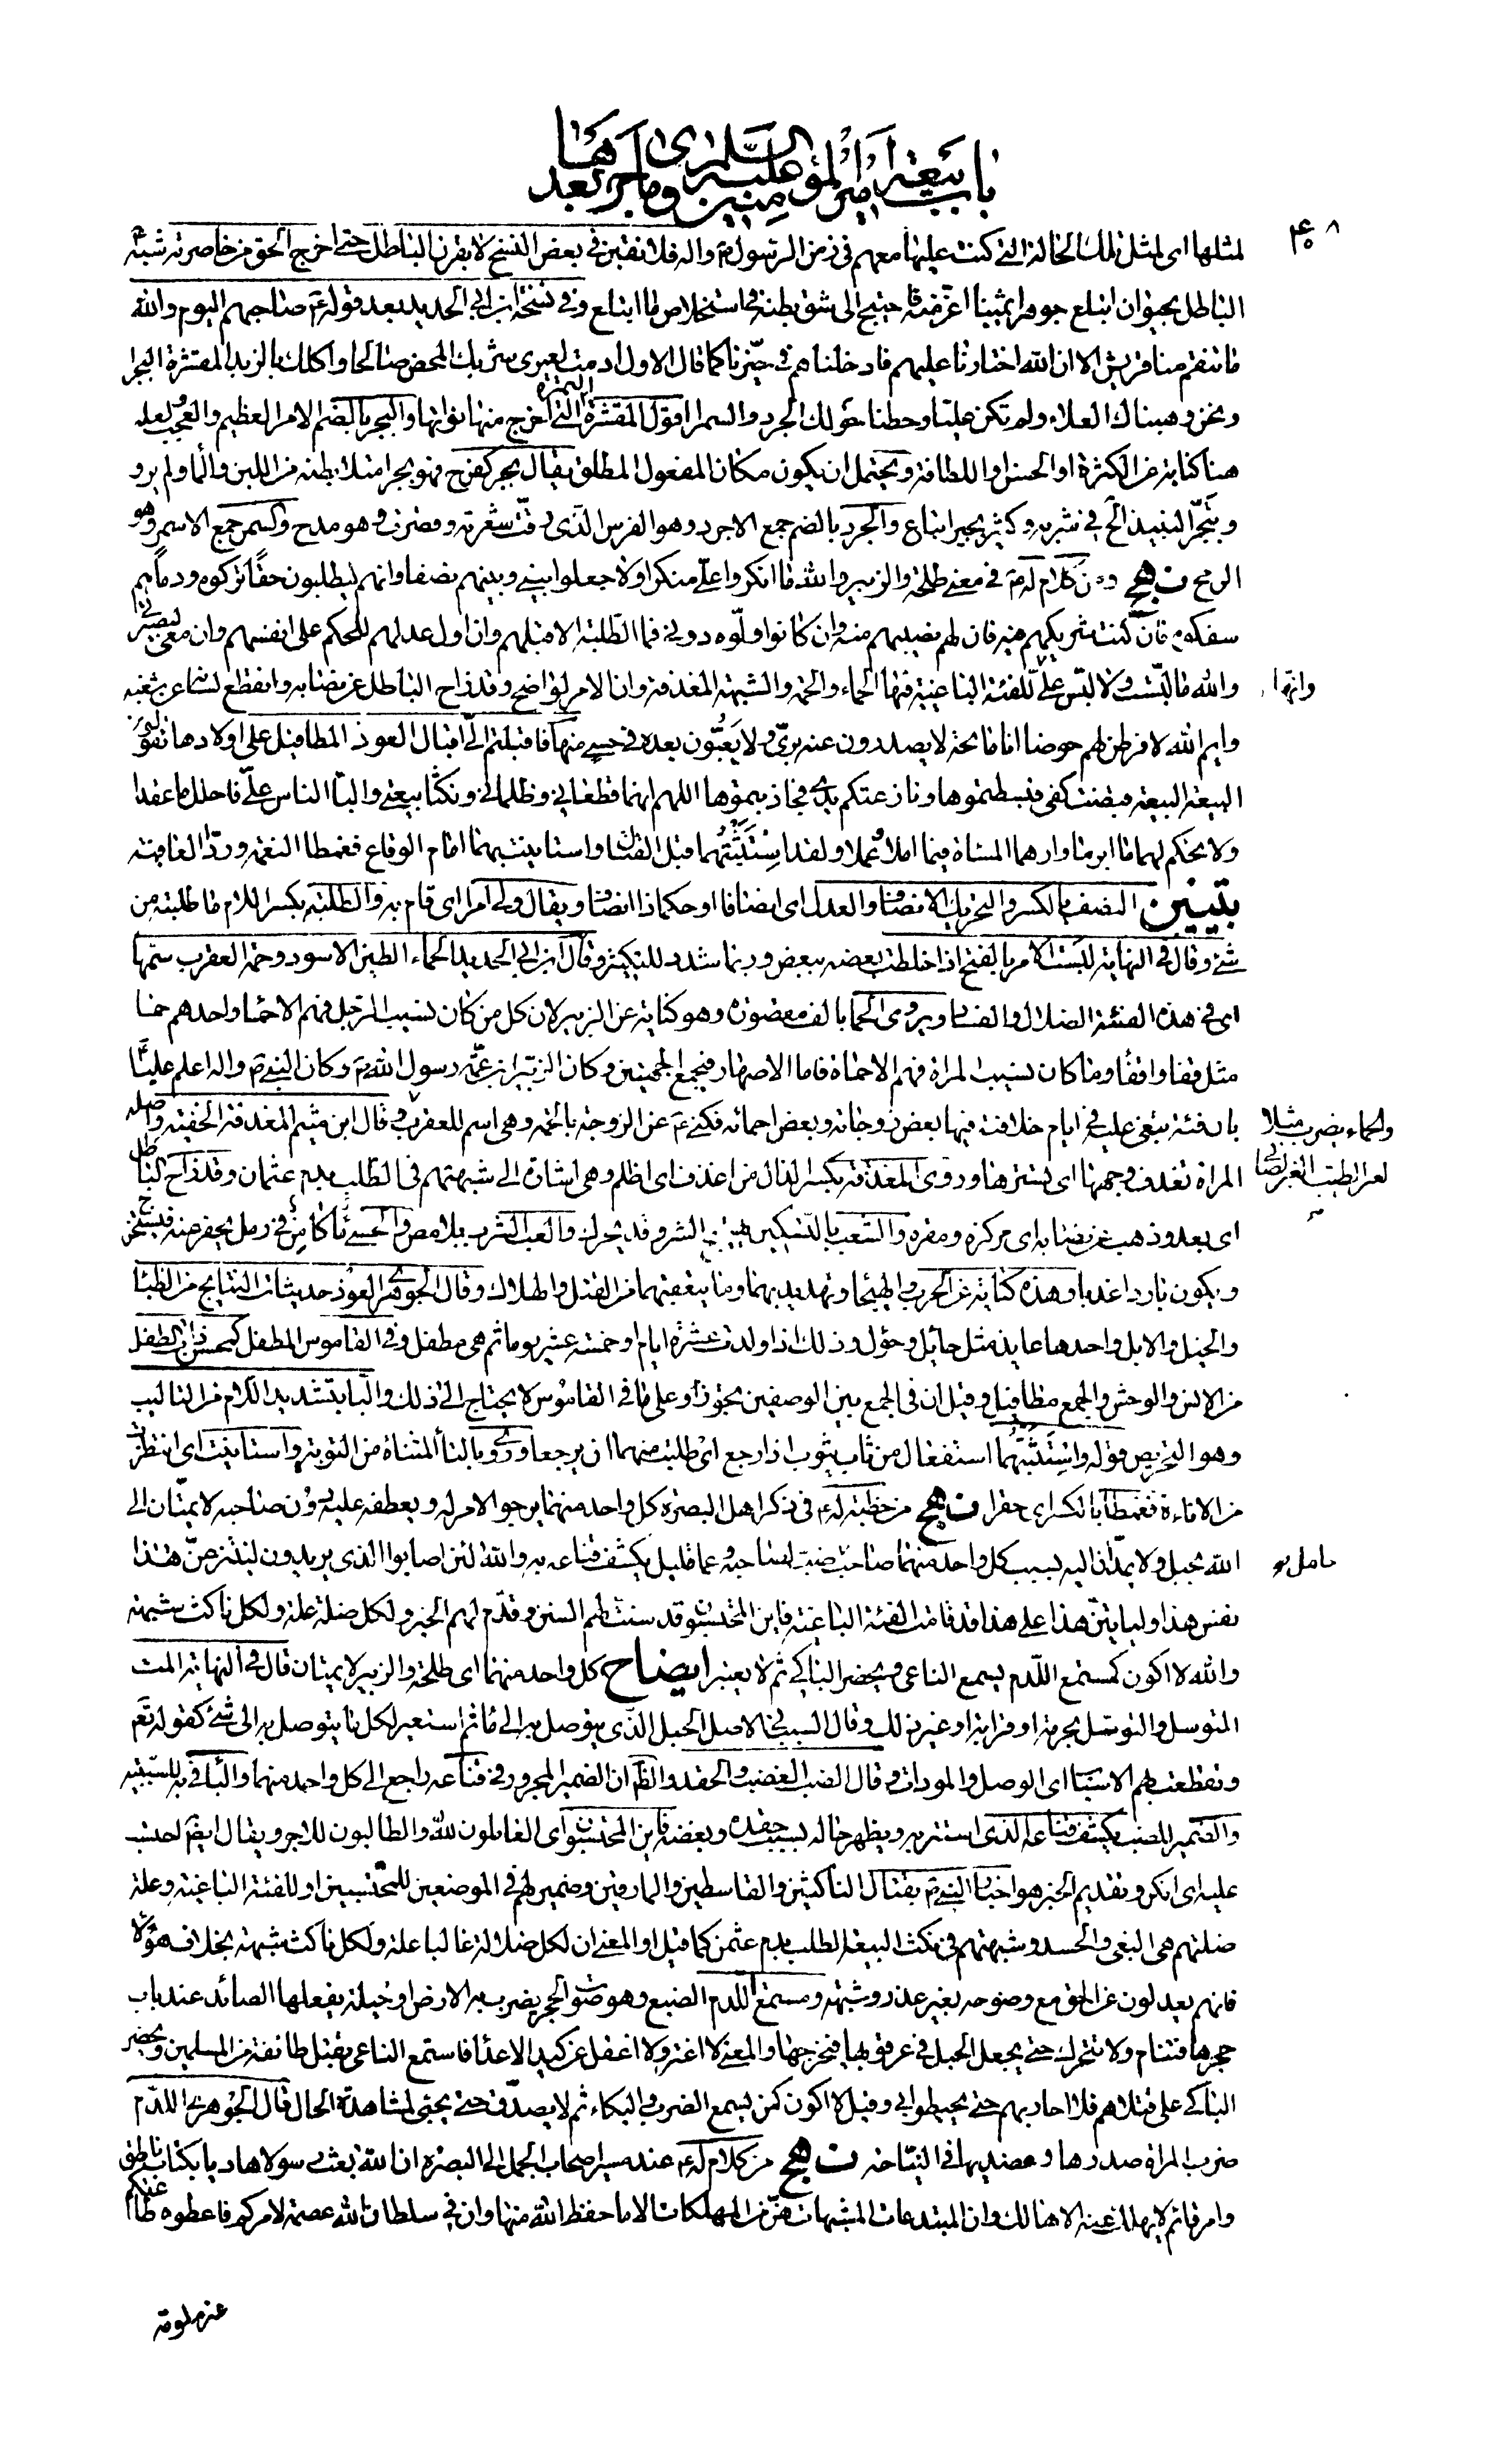 باب بيعة أمير المؤمنين عليه السلم وما جرى بعدها
۴۰۸
لمثلها اى لمثل تلك الحالة التي كنت عليها معهم في زمن الرسول ص واله فلانقبن في بعض النسخ لابقرن الباطل حتى اخرج الحق من خاصرته شبه
الباطل بحيوان ابتلع جوهرا ثمينا اعز منه فاحتيج الى شق بطنه في استخلاص ما ابتلع وفي نسخة ابن ابي الحديد بعد قوله ع صاحبهم اليوم والله
ما تنقم منا قريش الا ان الله اختارنا عليهم فادخلناهم في حيزنا كما قال الاول ادمت لعمرى شربك المحض صابحا واكلك بالزبد المقشرة البجرا
ونحن وهبناك العلاء ولم تكن عليا وحطنا حولك الجرد والسمرا اقول المقشرة التمرة التي اخرج منها نواتها والبجر بالضم الامر العظيم والعجب ولعله
هنا كناية عن الكثرة او الحسن او اللطافة ويحتمل ان يكون مكان المفعول المطلق يقال بجر كفرح فهو بجر امتلأ بطنه من اللبن والماء ولم يرو
وتبجر النبيذ الح في شربه وكثير بجير اتباع والجرد بالضم جمع الاجرد وهو الفرس الذى رقت شعرته وقصرت وهو مدح والسمر جمع الاسمر وهو
الرمح نهج ومن كلام له ع في معنى طلحة والزبير والله ما انكروا علي منكرا ولا جعلوا بيني وبينهم نصفا وانهم ليطلبون حقا تركوه ودما هم
سفكوه فان كنت شريكهم فيه فان لهم نصيبهم منه وان كانوا ولوه دوني فما الطلبة الا قبلهم وان اول عدلهم للحكم على انفسهم وان معي لبصيرتي
والله ما لبست ولا لبس علي للفئة الباغية فيها الحماء والحمة والشبهة المغدفة وان الامر لواضح وقد زاح الباطل عن نصابه وانقطع لسانه عن شغبه
وانها
وايم الله لافرطن لهم حوضا انا ماتحه لا يصدرون عنه بري ولا يعبون بعده في حسي منها فاقبلتم الي اقبال العوذ المطافيل على اولادها تقولون
البيعة البيعة قبضت كفى فبسطتموها ونازعتكم يدى فجاذبتموها اللهم انهما قطعاني وظلماني ونكثا بيعتي والبا الناس علي فاحلل ما عقدا
ولا تحكم لهما ما ابرما وارهما المساءة فيما املا وعملا ولقد استثبتهما قبل القتال واستانيت بهما امام الوقاع فغمطا النعمة وردا العافية
تبيين النصف بالكسر والتحريك الانصاف والعدل اى انصافا او حكما ذا انصاف ويقال ولي امرا اى قام به والطلبة بكسر اللام ما طلبته من
شئ وقال في النهاية لبست الامر بالفتح اذا خلطت بعضه ببعض وربما شدد للتكثير وقال ابن ابي الحديد الحماء الطين الاسود وحمة العقرب سمها
اى في هذه الفئة الضلال والفساد ويروى الحما بالف مقصورة وهو كناية عن الزبير لان كل من كان نسيب الرجل فهم الاحماء واحدهم حما
مثل قفا واقفاء وما كان نسيب المراة فهم الاحماة فاما الاصهار فيجمع الجهتين وكان الزبير ابن عمة رسول الله ص وكان النبي ص واله اعلم عليا
بان فئة تبغى عليه في ايام خلافته فيها بعض زوجاته وبعض احمائه فكنى ع عن الزوجة بالحمة وهى اسم للعقرب وقال ابن ميثم المغدفة الخفية واصله
والحماء يضرب مثلا لغير الطيب الغير الصافي
المراة تغدف وجهها اى تسترها وروى المغدفة بكسر الذال من اغدف اى اظلم وهى اشارة الى شبهتهم في الطلب بدم عثمان وقد زاح الباطل
اى بعد وذهب عن نصابه اى مركزه ومقره والشغب بالتسكين تهييج الشر وقد يحرك والعب الشرب بلا مص والحسي ماء كامن في رمل يحفر عنه فيستخرج
ويكون باردا عذبا وهذه كناية عن الحرب والهيجاء وتهديد بهما وما يتعقبهما من القتل والهلاك وقال الجوهرى العوذ حديثات النتايج من الظباء
والخيل والابل واحدها عايذ مثل حائل وحول وذلك اذا ولدت عشرة ايام او خمسة عشر يوما ثم هى مطفل وفي القاموس المطفل كمحسن ذات الطفل
من الانس والوحش والجمع مطافيل وقيل ان في الجمع بين الوصفين تجوزا وعلى ما في القاموس لا يحتاج الى ذلك والبا بتشديد اللام من التاليب
وهو التحريص قوله واستثبتهما استفعال من ثاب يثوب اذا رجع اى طلبت منهما ان يرجعا وروى بالتاء المثناة من التوبة واستانيت اى انتظرت
من الاناءة فغمطا بالكسر اى حقرا نهج من خطبة له ع في ذكر اهل البصرة كل واحد منهما يرجو الامر له ويعطفه عليه دون صاحبه لا يمتان الى
الله بحبل ولا يمدان اليه بسبب كل واحد منهما حامل ضب لصاحبه وعما قليل يكشف قناعه به والله لئن اصابوا الذى يريدون لينتزعن هذا
حامل
نفس هذا ولياتين هذا على هذا قد قامت الفئة الباغية فاين المحتسبون قد سنت لهم السنن وقدم لهم الخبر ولكل ضلة علة ولكل ناكث شبهة
والله لا اكون كمستمع اللدم يسمع الناعى ويحضر الباكي ثم لا يعتبر ايضاح كل واحد منهما اى طلحة والزبير لا يمتان قال في النهاية المت
التوسل والتوصل بحرمة او قرابة او غير ذلك وقال السبب في الاصل الحبل الذى يتوصل به الى ماء ثم استعير لكل ما يتوصل به الى شئ كقوله تع
وتقطعت بهم الاسباب اى الوصل والمودات وقال الضب الغضب والحقد والظ ان الضمير المجرور في قناعه راجع الى كل واحد منهما والباء في به للسببية
والضمير للضب يكشف قناعه الذى استتر به ويظهر حاله بسبب حقده وبغضه فاين المحتسبون اى العاملون لله والطالبون للاجر ويقال ايض احتسب
عليه اى انكر وتقديم الخبر هو اخبار النبي ص بقتال الناكثين والقاسطين والمارقين وضمير لهم في الموضعين للمحتسبين او للفئة الباغية وعلة
ضلتهم هى البغى والحسد وشبهتهم في نكث البيعة الطلب بدم عثمن كما قيل او المعنى ان لكل ضلالة غالبا علة ولكل ناكث شبهة بخلاف هؤلاء
فانهم يعدلون عن الحق مع وضوحه بغير عذر وشبهة ومستمع اللدم الضبع وهو صوت الحجر يضرب به الارض او حيلة يفعلها الصائد عند باب
جحرها فتنام ولا تتحرك حتى يجعل الحبل في عرقوبها فيخرجها والمعنى لا اغتر ولا اغفل عن كيد الاعداء فاستمع الناعى بقتل طائفة من المسلمين ويحضر
الباكي على قتلاهم فلا احاربهم حتى يحيطوا بي وقيل لا اكون كمن يسمع الضرب والبكاء ثم لا يصدق حتى يجئ لمشاهدة الحال قال الجوهرى اللدم
ضرب المراة صدرها وعضديها في النياحة نهج من كلام له ع عند مسير اصحاب الجمل الى البصرة ان الله بعث رسولا هاديا بكتاب ناطق
وامر قائم لا يهلك عنه الا هالك وان المبتدعات المشبهات هن من المهلكات الا ما حفظ الله منها وان في سلطان الله عصمة لامركم فاعطوه طاعتكم
غير ملومة